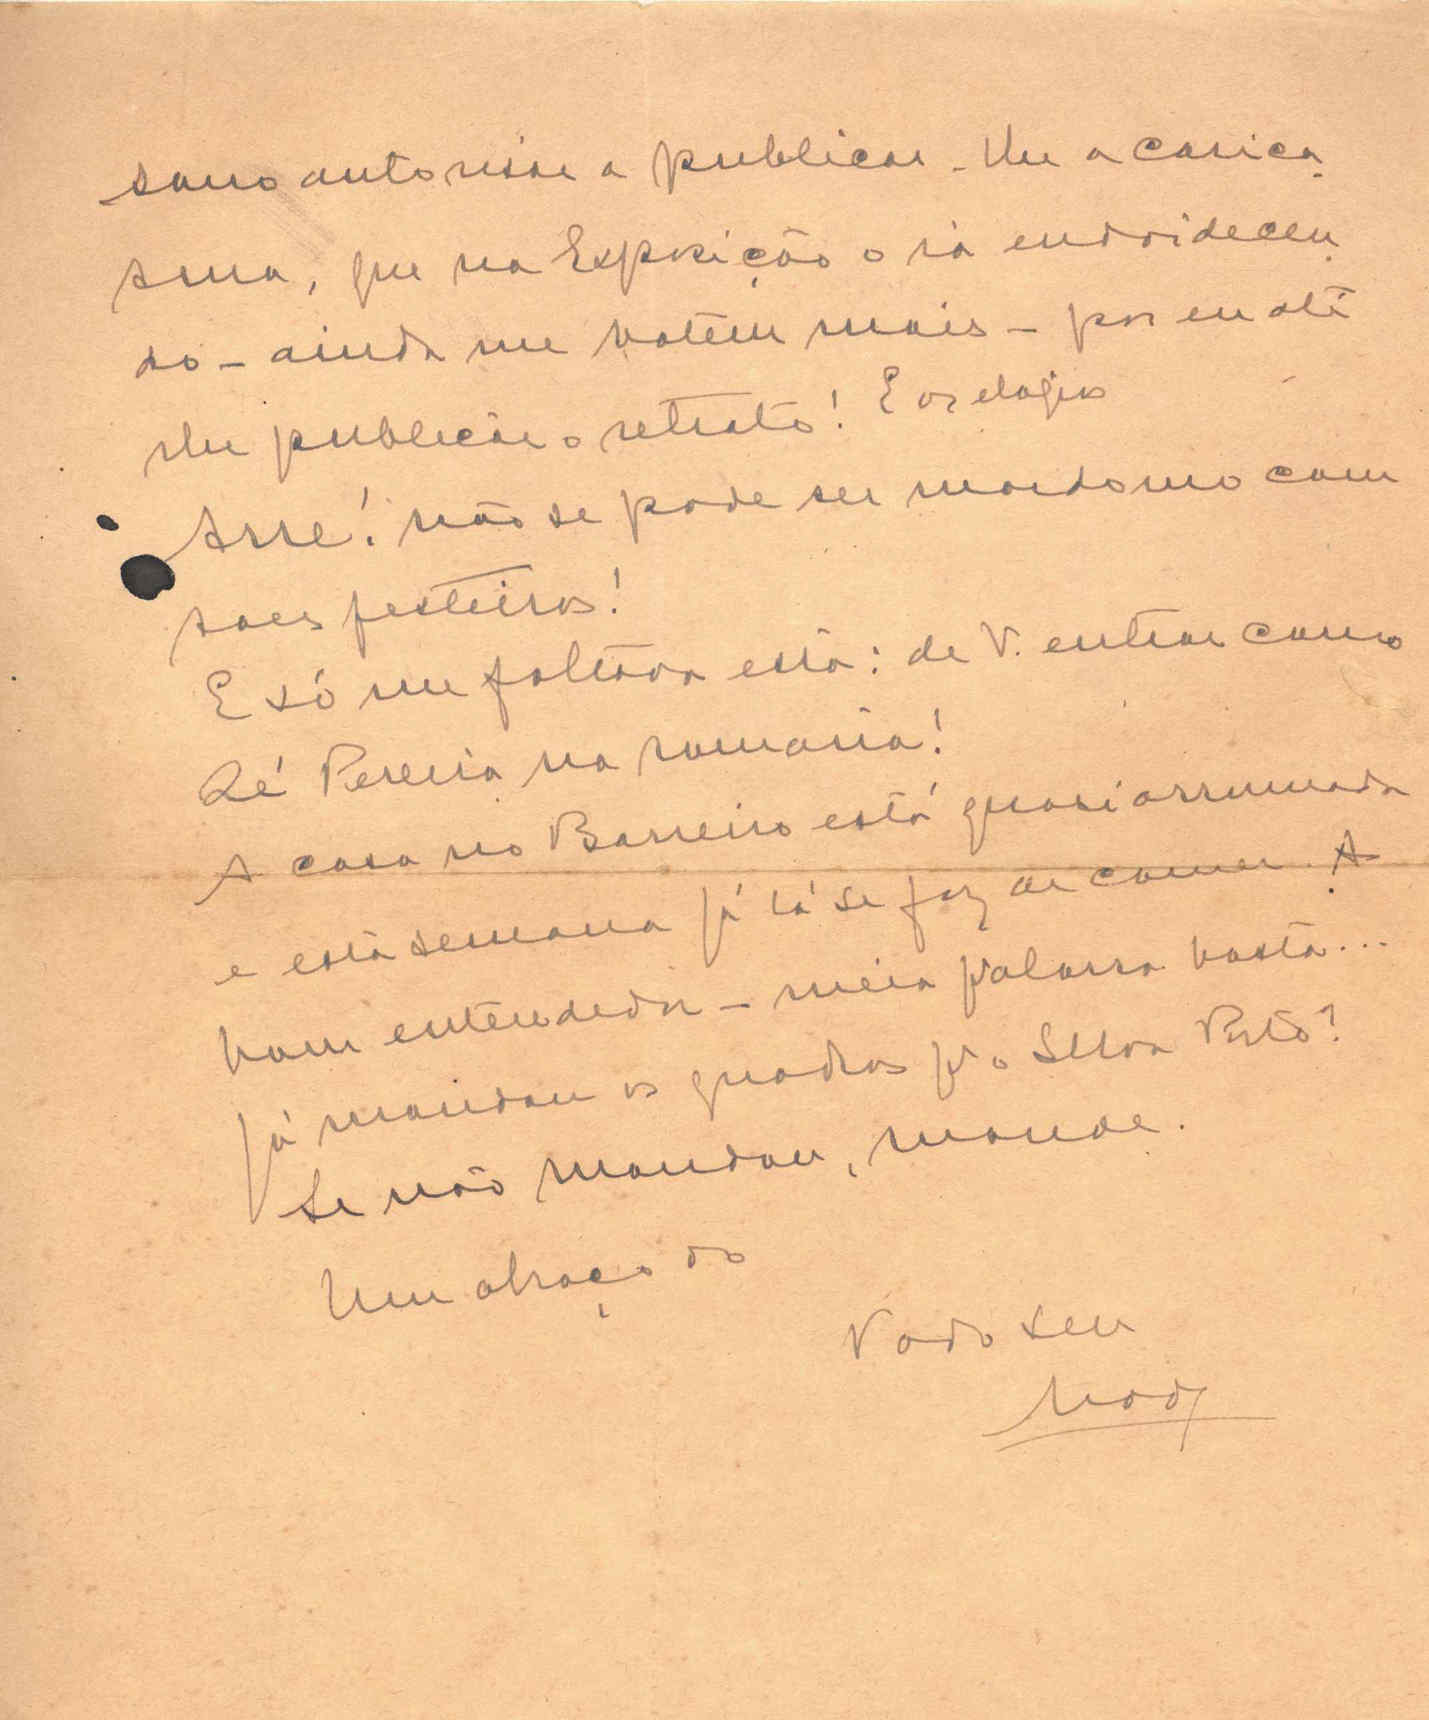 autorisar a publicar. Um a carica
tura, que na Exposição o ia endoidecen
do - ainda me batem mais - por eu até
lhe publicar o retrato! E os elogios
Arre! não se pode ser mordomo com
taes festeiros!
E só me faltava esta: de V. entrar como
Zé Pereira na romaria!
A casa no Barreiro está quasi arrumada
e esta semana já lá se faz de comer. A
bom entendedor - meia palavra basta...
Já mandou os quadros pº o Silva Porto?
Se não mandou, mande.
Um abraço do
Todo seu